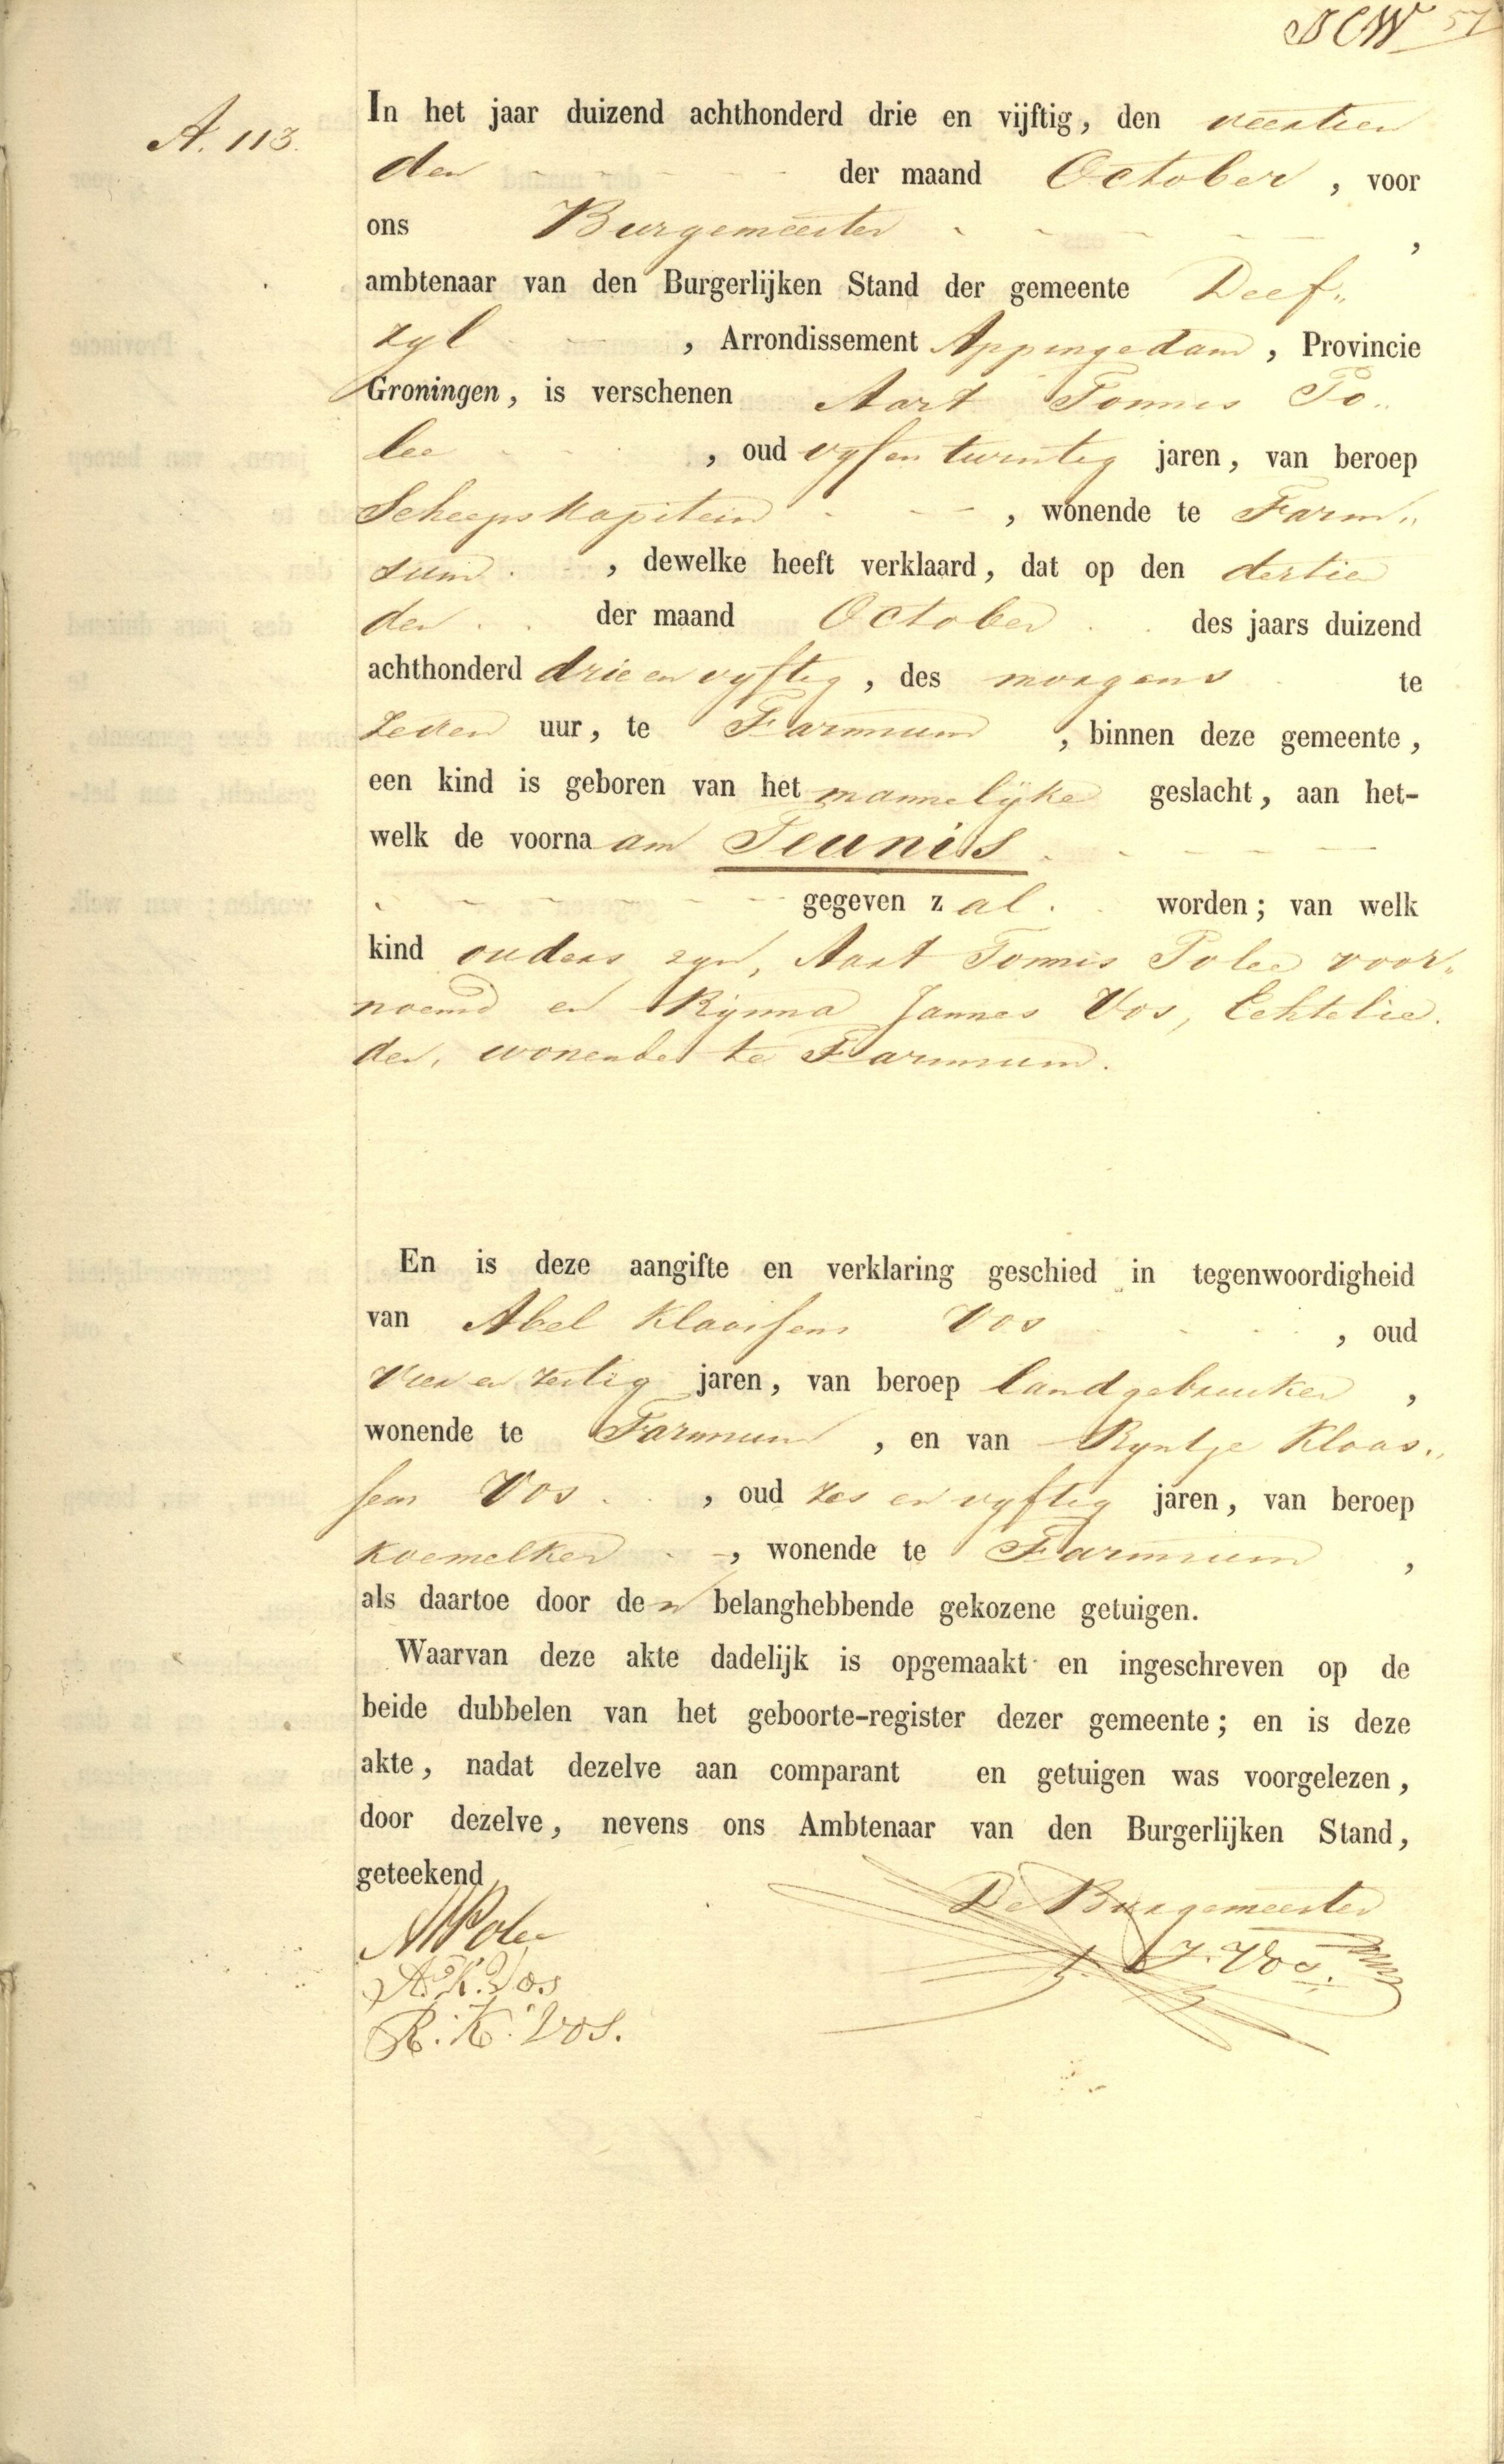 BCW 57
A. 113.
In het jaar duizend achthonderd drie en vijftig, den veertien
den der maand October, voor
ons Burgemeester,
ambtenaar van den Burgerlijken Stand der gemeente Delf„
zyl, Arrondissement Appingedam, Provincie
Groningen, is verschenen Aart Tonnis Po„
lee, oud vyf en twintig jaren, van beroep
Scheepskapitein, wonende te Farm„
sum, dewelke heeft verklaard, dat op den dertien
den der maand October des jaars duizend
achthonderd drie en vyftig, des morgens te
zeven uur, te Farmsum, binnen deze gemeente,
een kind is geboren van het mannelijke geslacht, aan het-
welk de voornaam Teunis
gegeven zal worden; van welk
kind ouders zyn, Aart Tonnis Polee voor„
noemd en Rijnna Jannes Vos, Echtelie„
den, wonende te Farmsum.
En is deze aangifte en verklaring geschied in tegenwoordigheid
van Abel Klaassens Vos, oud
Vier en zestig jaren, van beroep landgebruiker,
wonende te Farmsum, en van Ryntje Klaas„
sens Vos, oud zes en vyftig jaren, van beroep
koemelker, wonende te Farmsum,
als daartoe door den belanghebbende gekozene getuigen.
Waarvan deze akte dadelijk is opgemaakt en ingeschreven op de
beide dubbelen van het geboorte-register dezer gemeente; en is deze
akte, nadat dezelve aan comparant en getuigen was voorgelezen,
door dezelve, nevens ons Ambtenaar van den Burgerlijken Stand,
geteekend
De Burgemeester
A T Polee
J. Vos.
A. K. Vos
R. K. Vos.